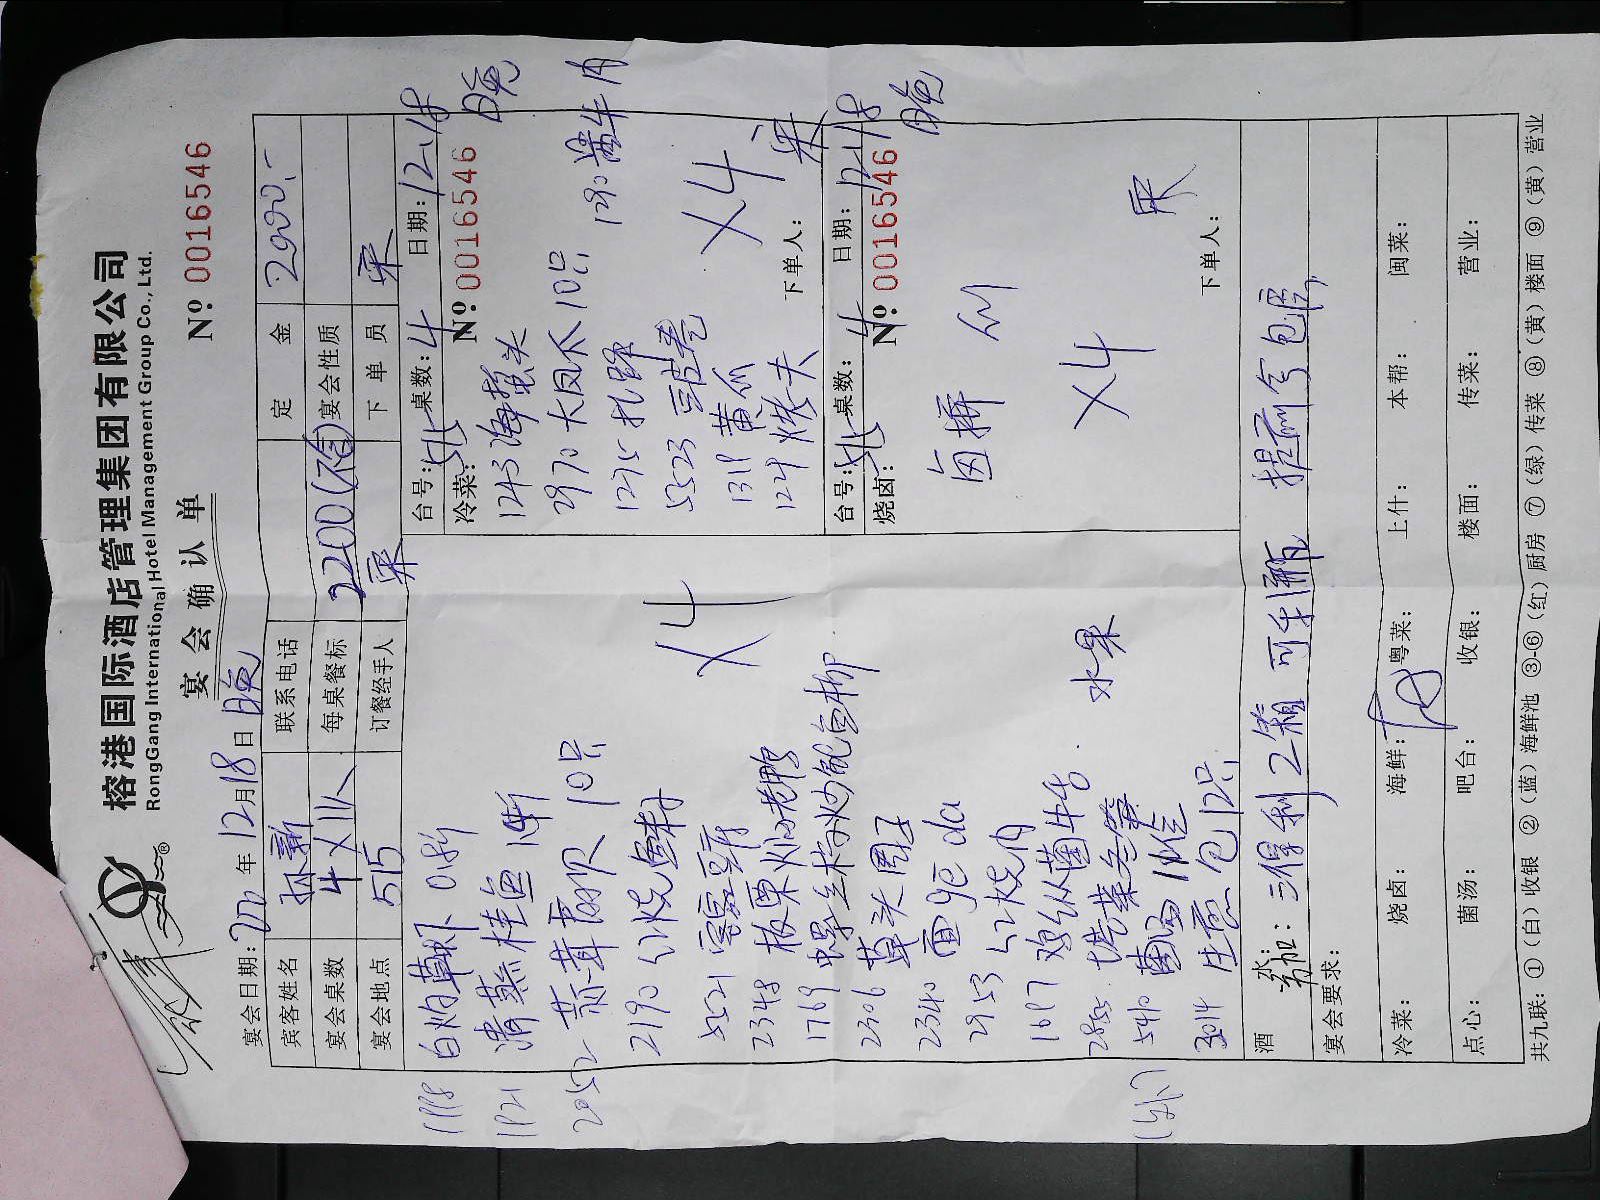 榕港国际酒店管理集团有限公司
RongGang International Hotel Management Group Co., Ltd.
宴会确认单
№ 0016546
宴会日期: 年 12月18日 晚
宾客姓名 孙新 联系电话 定金 2000.-
宴会桌数 4 每桌餐标 2200 宴会性质
宴会地点 515 订餐经手人 下单员
1118 白灼草虾 0.8斤
1121 清蒸桂鱼 1斤
2052 10只
2190 红烧
5521 豆
2348 板栗 老鸭
1769
2306 草头圈子
2340 面
2953 红烧肉
1617 鸡枞菌牛
2855 塔菜冬笋
5410 菌 1
3014 生煎包 12只
水果
X4
台号: 桌数: 4 日期: 12.18 晚
冷菜: № 0016546
1243 海蜇头
2970 大凤爪 10只
1275 扎蹄 1290 牛肉
5523 豆皮卷
1311 黄瓜
1224 烤夫
X4
下单人:
台号: 桌数: 4 日期: 12.18 晚
烧卤: № 0016546
卤拼
X4
下单人:
酒水: 另加: 三得利2箱 可乐1瓶 提前 包房
宴会要求:
冷菜: 烧卤: 海鲜: 粤菜: 上什: 本帮: 闽菜:
点心: 菌汤: 吧台: 收银: 楼面: 传菜: 营业:
共九联: ①(白)收银 ②(蓝)海鲜池 ③-⑥(红)厨房 ⑦(绿)传菜 ⑧(黄)楼面 ⑨(黄)营业